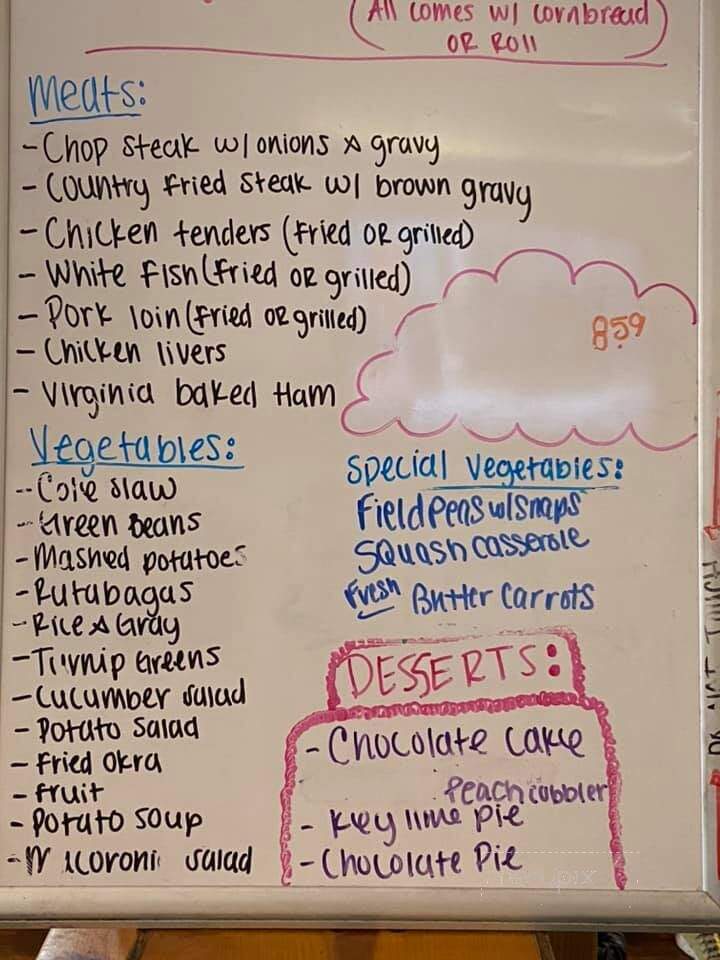 All comes w/ cornbread
OR Roll
Meats:
- Chop steak w/ onions & gravy
- Country Fried Steak w/ brown gravy
- Chicken tenders (Fried OR grilled)
- White Fish (fried OR grilled)
- Pork loin (Fried OR grilled)
- Chicken livers
- Virginia baked Ham
8.59
Vegetables:
- Cole slaw
- Green Beans
- Mashed potatoes
- Rutabagas
- Rice & Gray
- Turnip Greens
- Cucumber salad
- Potato Salad
- Fried Okra
- fruit
- Potato Soup
- Macoroni salad
Special Vegetables:
Field Peas w/ snaps
Squash casserole
Fresh Butter Carrots
DESSERTS:
- Chocolate cake
Peach cobbler
- Key lime pie
- Chocolate Pie
DO NOT TOUCH